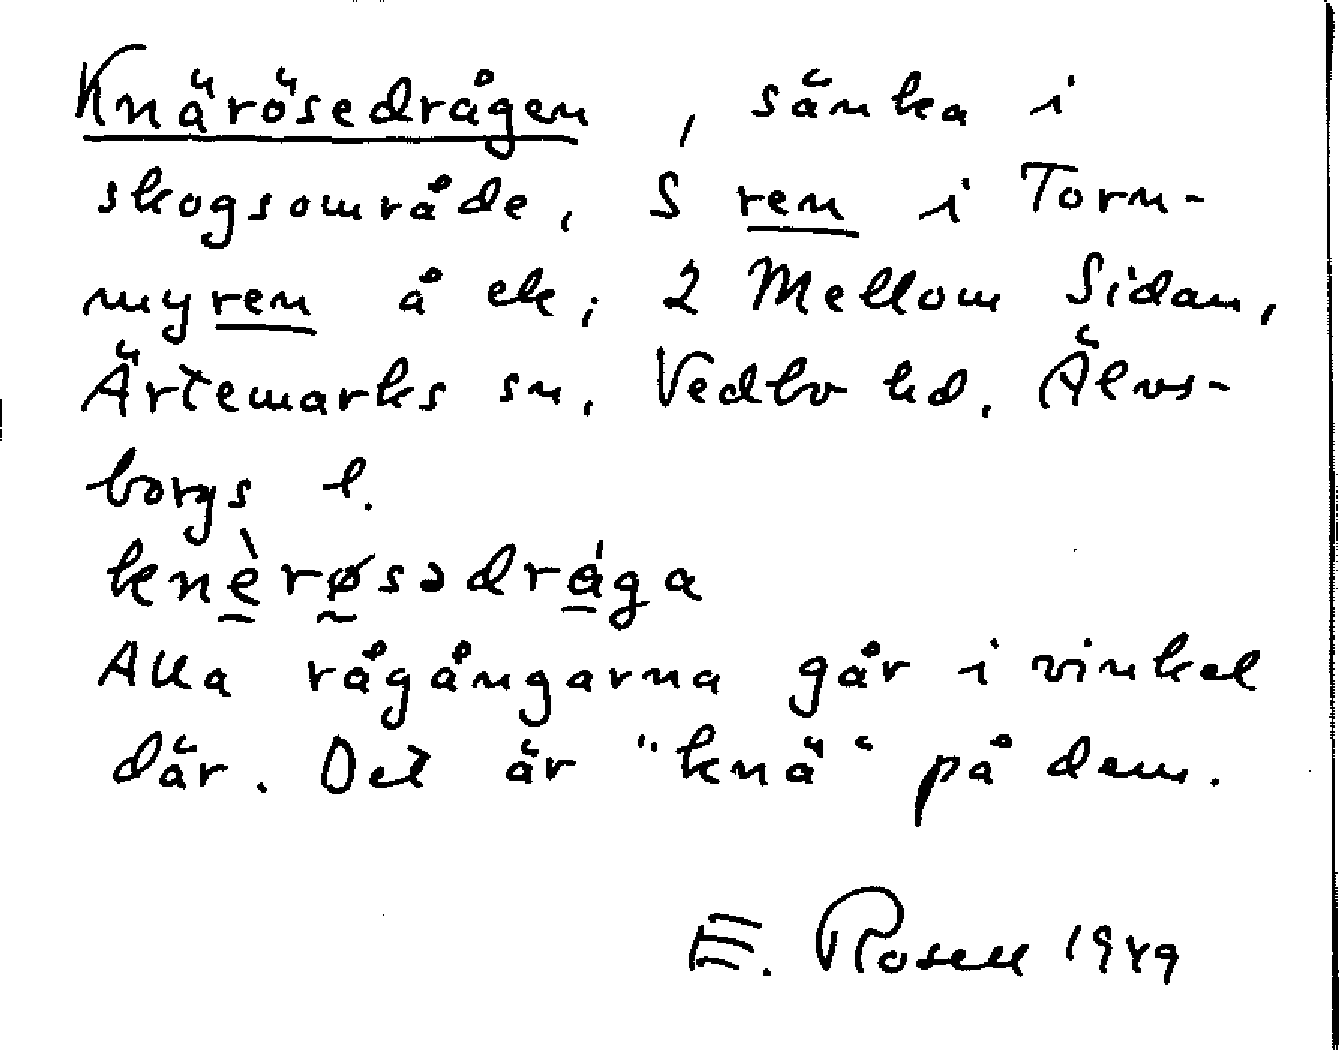 Knärösedrågen, sänka i
skogsområde, S ren i Torn-
myren å ek; 2 Mellom Sidan,
Ärtemarks sn, Vedbo hd, Älvs-
borgs l.
knèrøsədrága
Alla rågångarna går i vinkel
där. Det är "knä" på dem.
E. Rosell 1949